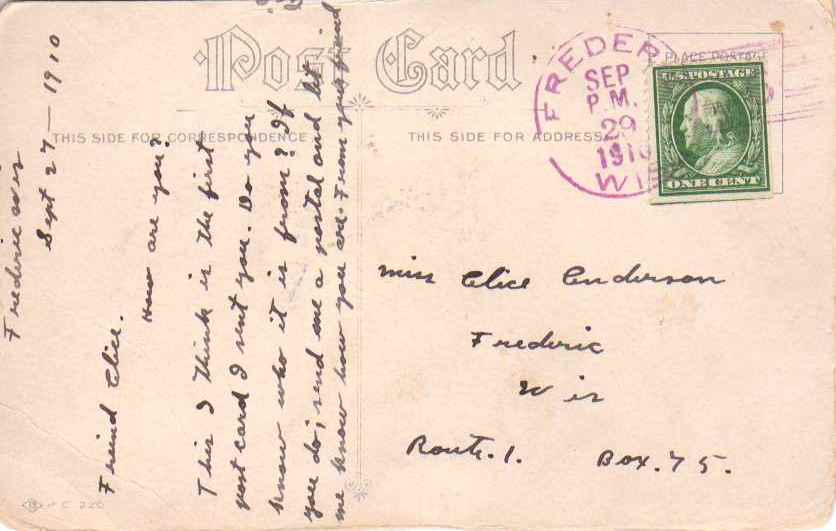 Post Card
THIS SIDE FOR CORRESPONDENCE
THIS SIDE FOR ADDRESS
PLACE POSTAGE
U.S. POSTAGE
ONE CENT
FREDER
SEP
P.M.
29
1910
WIS
Frederic Wis
Sept 27 — 1910
Friend Alice.
How are you?
This I think is the first
post card I sent you. Do you
know who it is from? If
you do, send me a postal and let
me know how you are. From your friend
Miss Alice Anderson
Frederic
Wis
Route. 1. Box. 75.
C 220